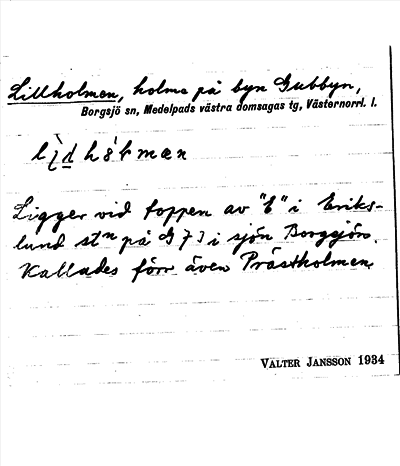 Lillholmen, holme på byn Gubbyn,
Borgsjö sn, Medelpads västra domsagas tg, Västernorrl. l.
Ligger vid toppen av "E" i Eriks-
lund stn på G 73 i sjön Borgsjön.
Kallades förr även Prästholmen.
VALTER JANSSON 1934